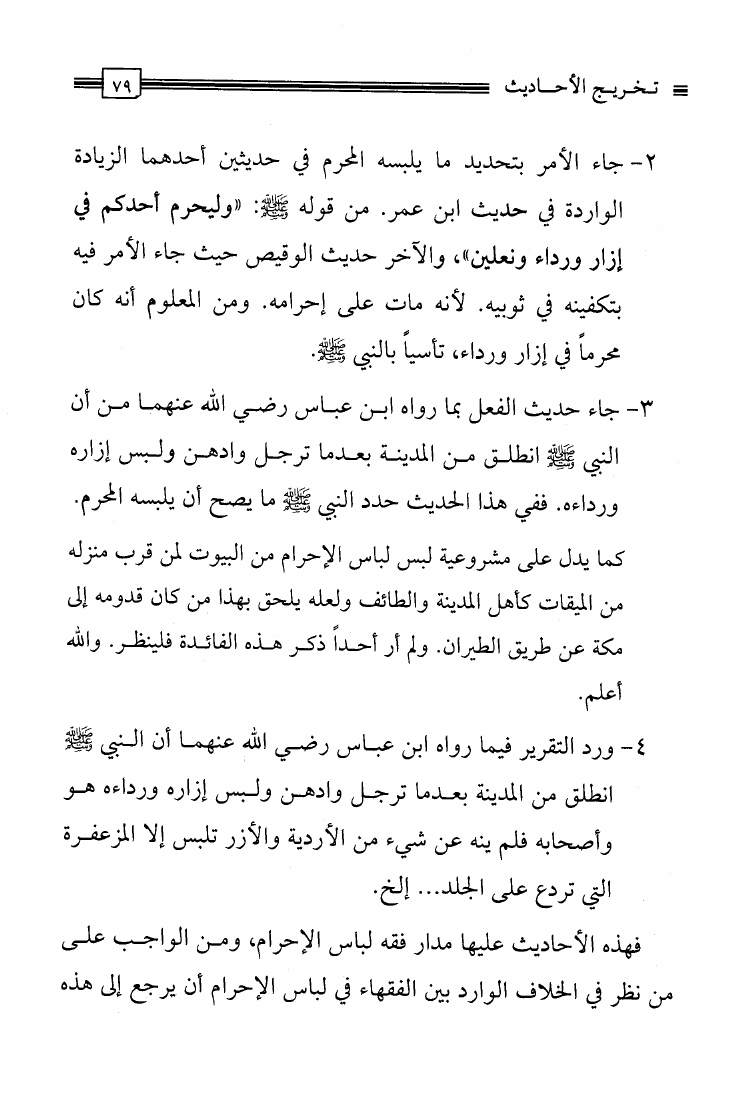 تخريج الأحاديث ٧٩
٢- جاء الأمر بتحديد ما يلبسه المحرم في حديثين أحدهما الزيادة
الواردة في حديث ابن عمر. من قوله ﷺ: «وليحرم أحدكم في
إزار ورداء ونعلين»، والآخر حديث الوقيص حيث جاء الأمر فيه
بتكفينه في ثوبيه. لأنه مات على إحرامه. ومن المعلوم أنه كان
محرماً في إزار ورداء، تأسياً بالنبي ﷺ.
٣- جاء حديث الفعل بما رواه ابن عباس رضي الله عنهما من أن
النبي ﷺ انطلق من المدينة بعدما ترجل وادهن ولبس إزاره
ورداءه. ففي هذا الحديث حدد النبي ﷺ ما يصح أن يلبسه المحرم.
كما يدل على مشروعية لبس لباس الإحرام من البيوت لمن قرب منزله
من الميقات كأهل المدينة والطائف ولعله يلحق بهذا من كان قدومه إلى
مكة عن طريق الطيران. ولم أر أحداً ذكر هذه الفائدة فلينظر. والله
أعلم.
٤- ورد التقرير فيما رواه ابن عباس رضي الله عنهما أن النبي ﷺ
انطلق من المدينة بعدما ترجل وادهن ولبس إزاره ورداءه هو
وأصحابه فلم ينه عن شيء من الأردية والأزر تلبس إلا المزعفرة
التي تردع على الجلد... إلخ.
فهذه الأحاديث عليها مدار فقه لباس الإحرام، ومن الواجب على
من نظر في الخلاف الوارد بين الفقهاء في لباس الإحرام أن يرجع إلى هذه